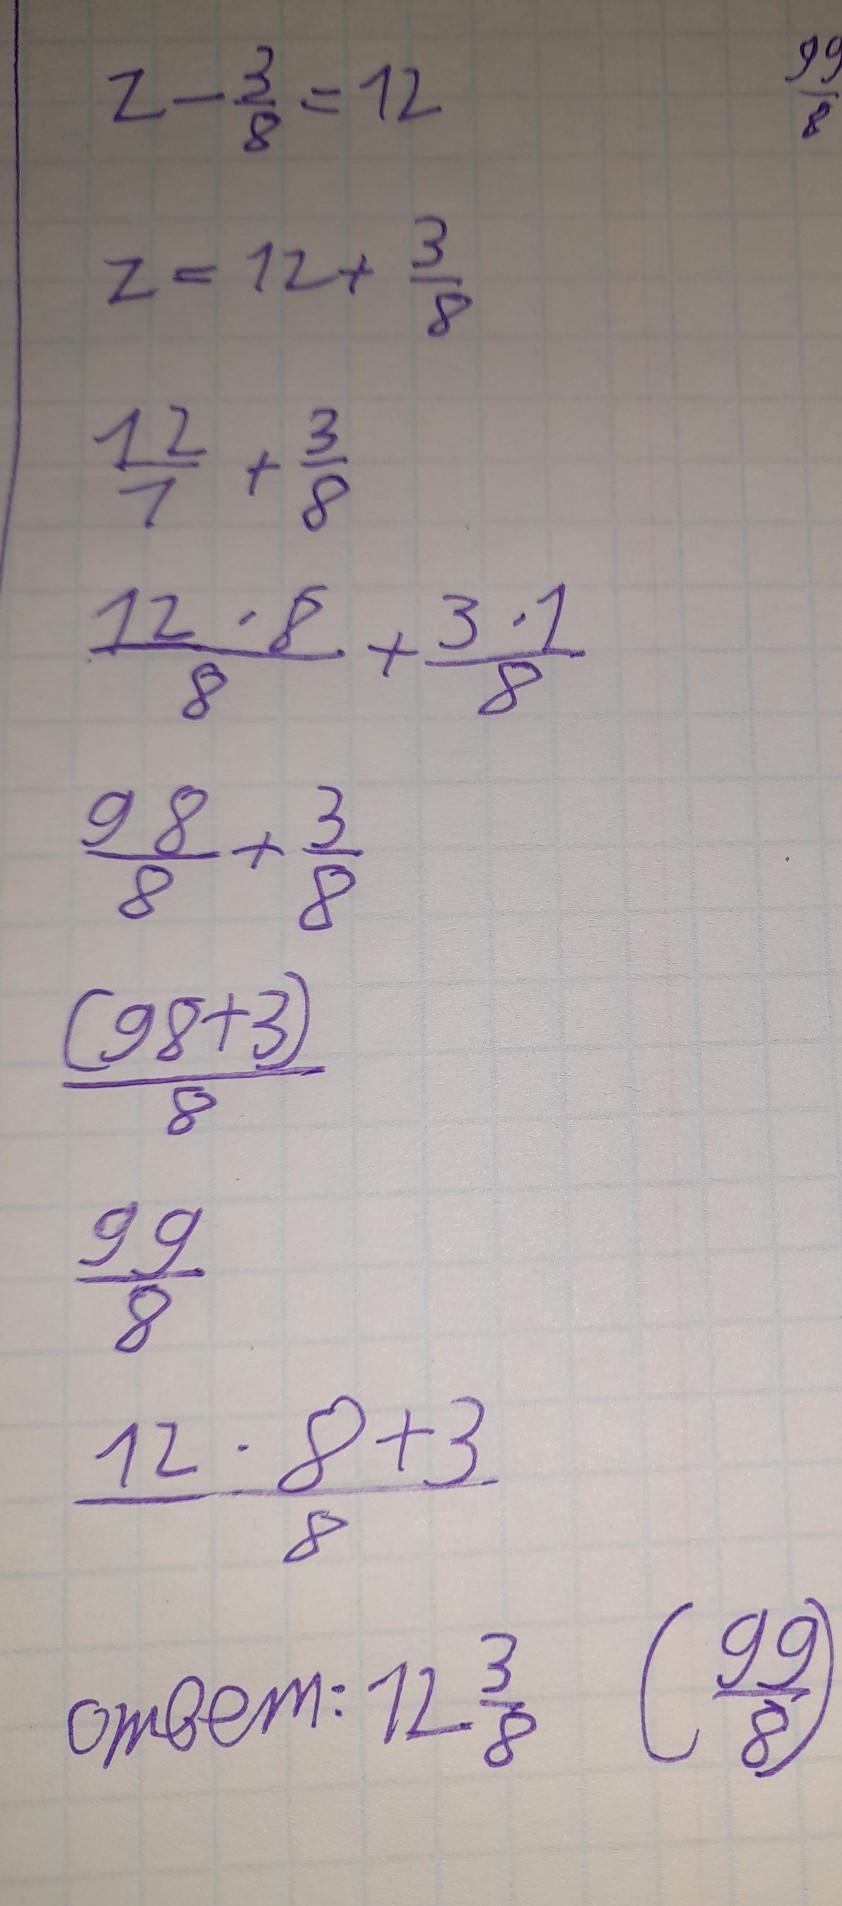 z - 3/8 = 12
99/8
z = 12 + 3/8
12/1 + 3/8
12 · 8/8 + 3 · 1/8
98/8 + 3/8
(98+3)/8
99/8
12 · 8 + 3/8
ответ: 12 3/8 (99/8)